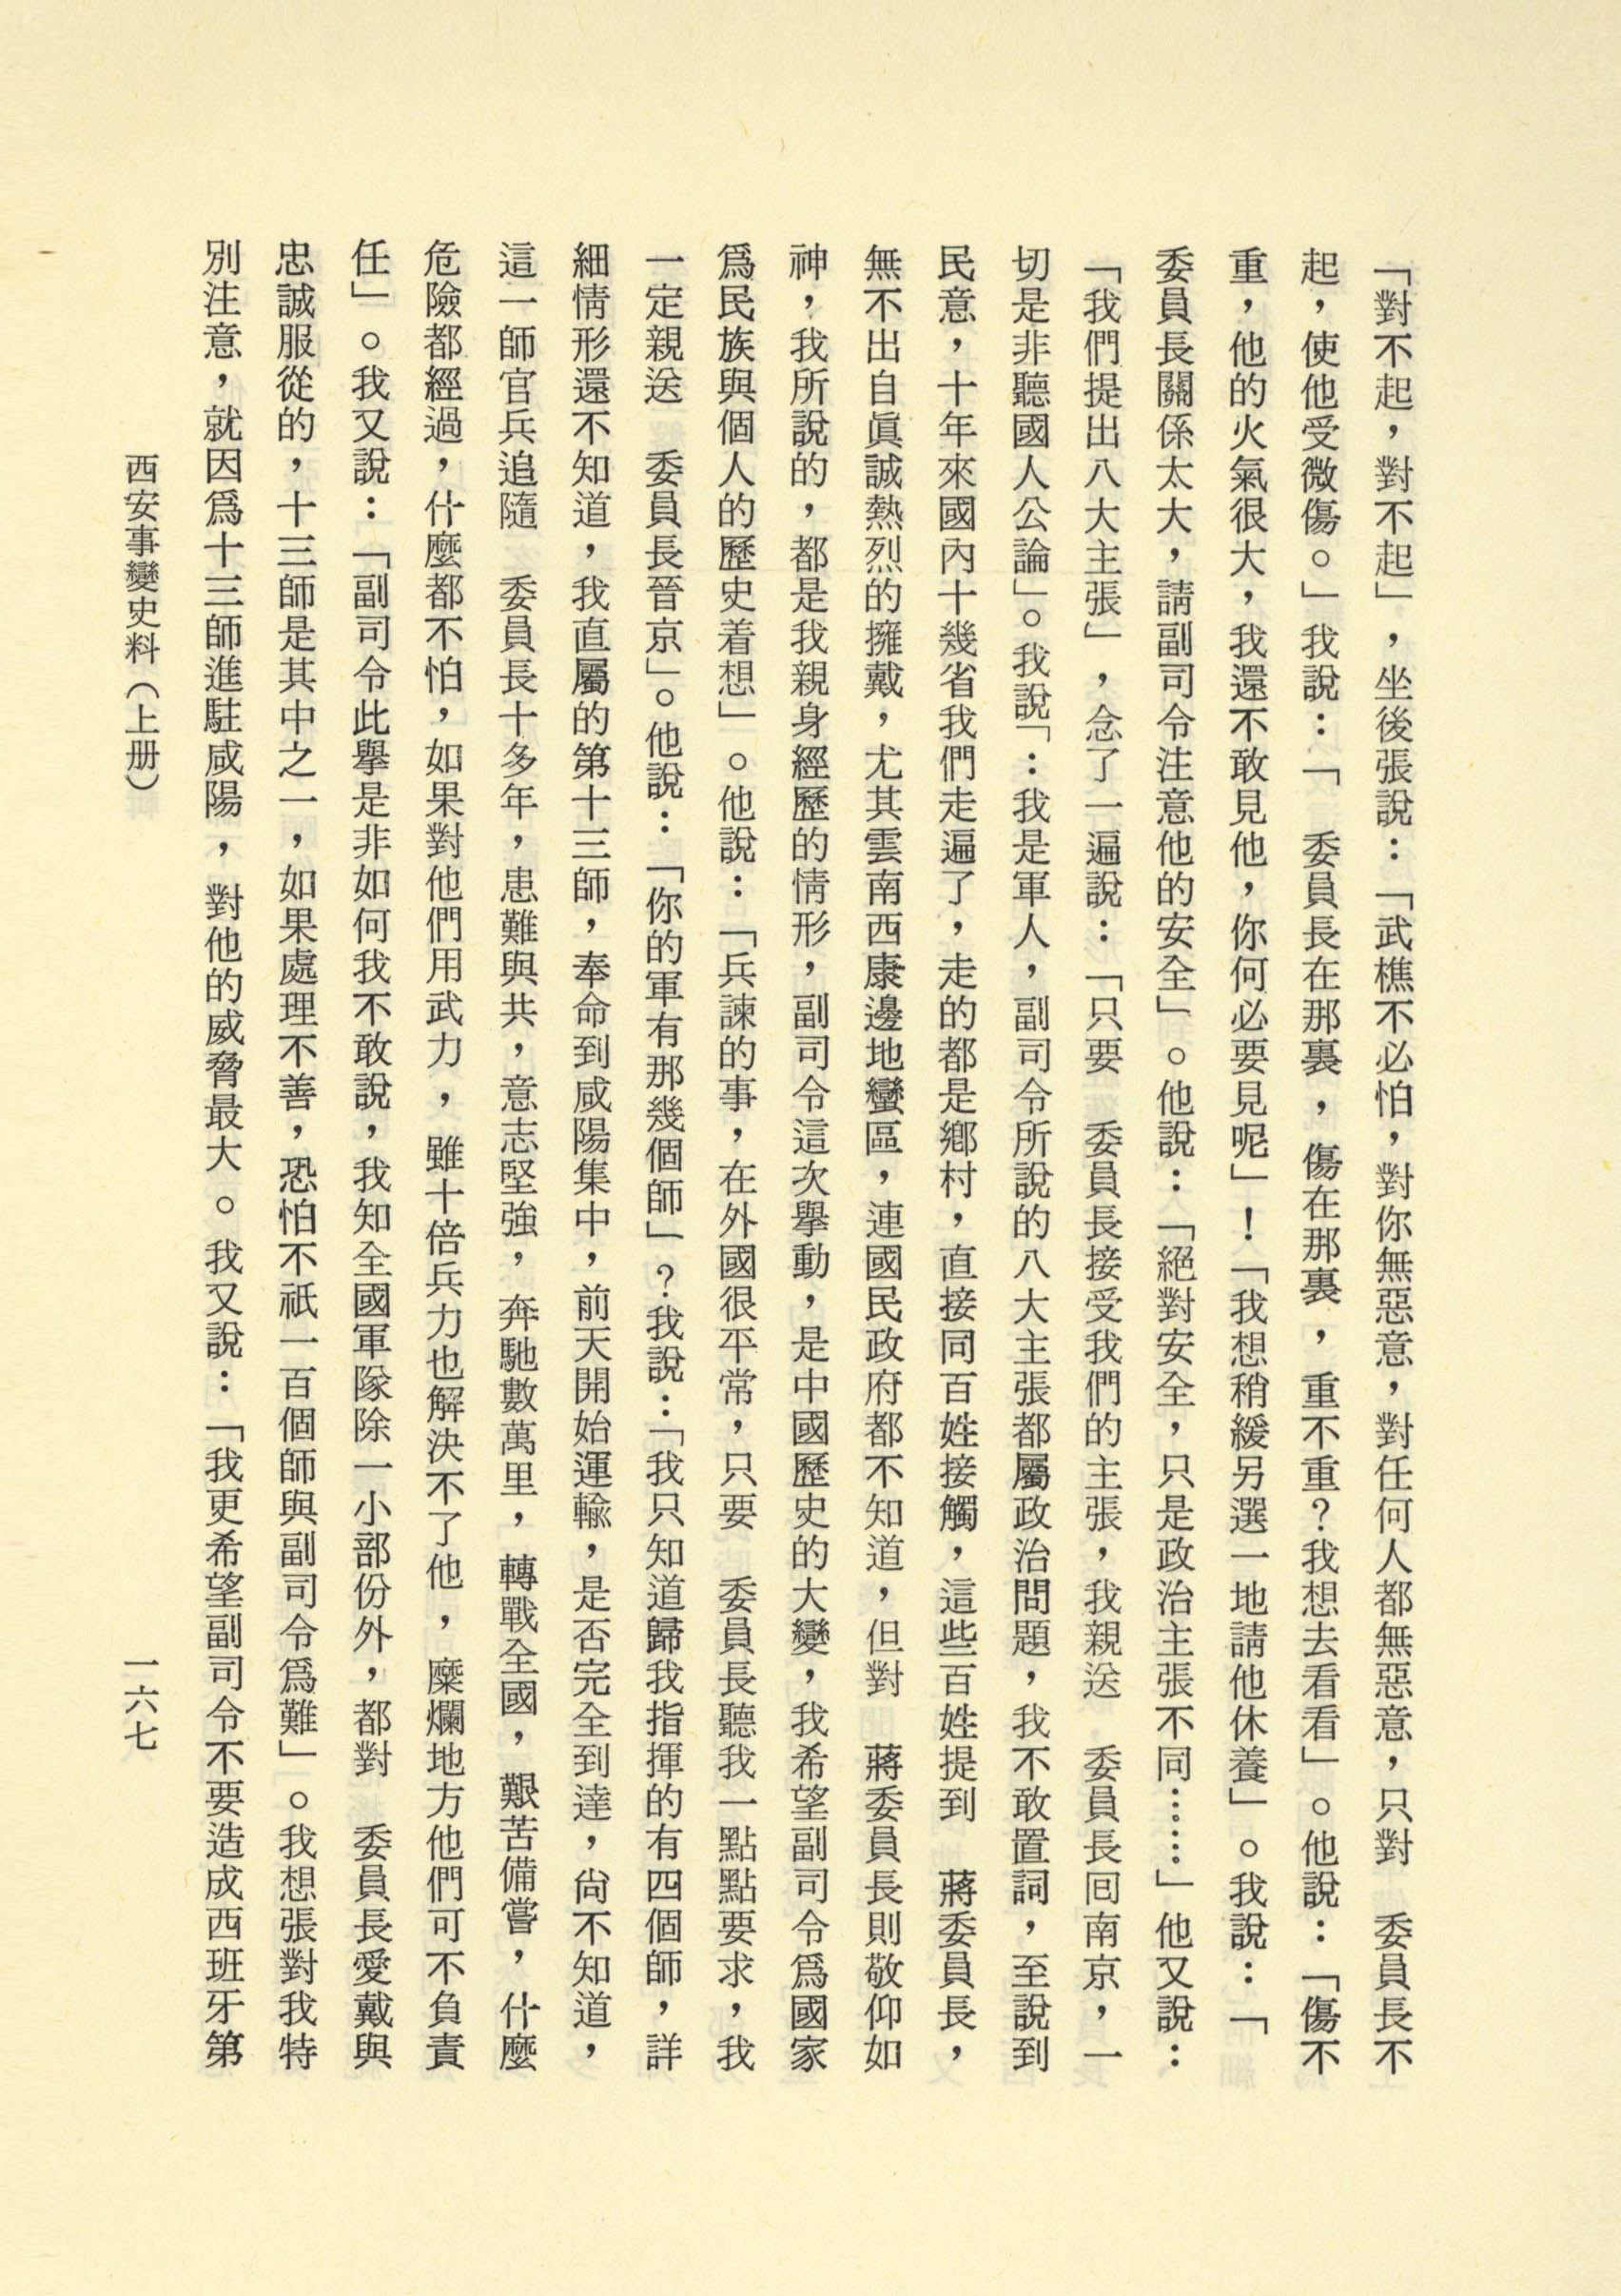 「對不起，對不起」，坐後張說：「武樵不必怕，對你無惡意，對任何人都無惡意，只對　委員長不
起，使他受微傷。」我說：「　委員長在那裏，傷在那裏，重不重？我想去看看」。他說：「傷不
重，他的火氣很大，我還不敢見他，你何必要見呢」！「我想稍緩另選一地請他休養」。我說：「
委員長關係太大，請副司令注意他的安全」。他說：「絕對安全，只是政治主張不同……」他又說：
「我們提出八大主張」，念了一遍說：「只要　委員長接受我們的主張，我親送　委員長回南京，一
切是非聽國人公論」。我說「：我是軍人，副司令所說的八大主張都屬政治問題，我不敢置詞，至說到
民意，十年來國內十幾省我們走遍了，走的都是鄉村，直接同百姓接觸，這些百姓提到　蔣委員長，
無不出自眞誠熱烈的擁戴，尤其雲南西康邊地蠻區，連國民政府都不知道，但對　蔣委員長則敬仰如
神，我所說的，都是我親身經歷的情形，副司令這次舉動，是中國歷史的大變，我希望副司令爲國家
爲民族與個人的歷史着想」。他說：「兵諫的事，在外國很平常，只要　委員長聽我一點點要求，我
一定親送　委員長晉京」。他說：「你的軍有那幾個師」？我說：「我只知道歸我指揮的有四個師，詳
細情形還不知道，我直屬的第十三師，奉命到咸陽集中，前天開始運輸，是否完全到達，尙不知道，
這一師官兵追隨　委員長十多年，患難與共，意志堅強，奔馳數萬里，轉戰全國，艱苦備嘗，什麼
危險都經過，什麼都不怕，如果對他們用武力，雖十倍兵力也解決不了他，糜爛地方他們可不負責
任」。我又說：「副司令此舉是非如何我不敢說，我知全國軍隊除一小部份外，都對　委員長愛戴與
忠誠服從的，十三師是其中之一，如果處理不善，恐怕不祇一百個師與副司令爲難」。我想張對我特
別注意，就因爲十三師進駐咸陽，對他的威脅最大。我又說：「我更希望副司令不要造成西班牙第
西安事變史料（上册）
一六七